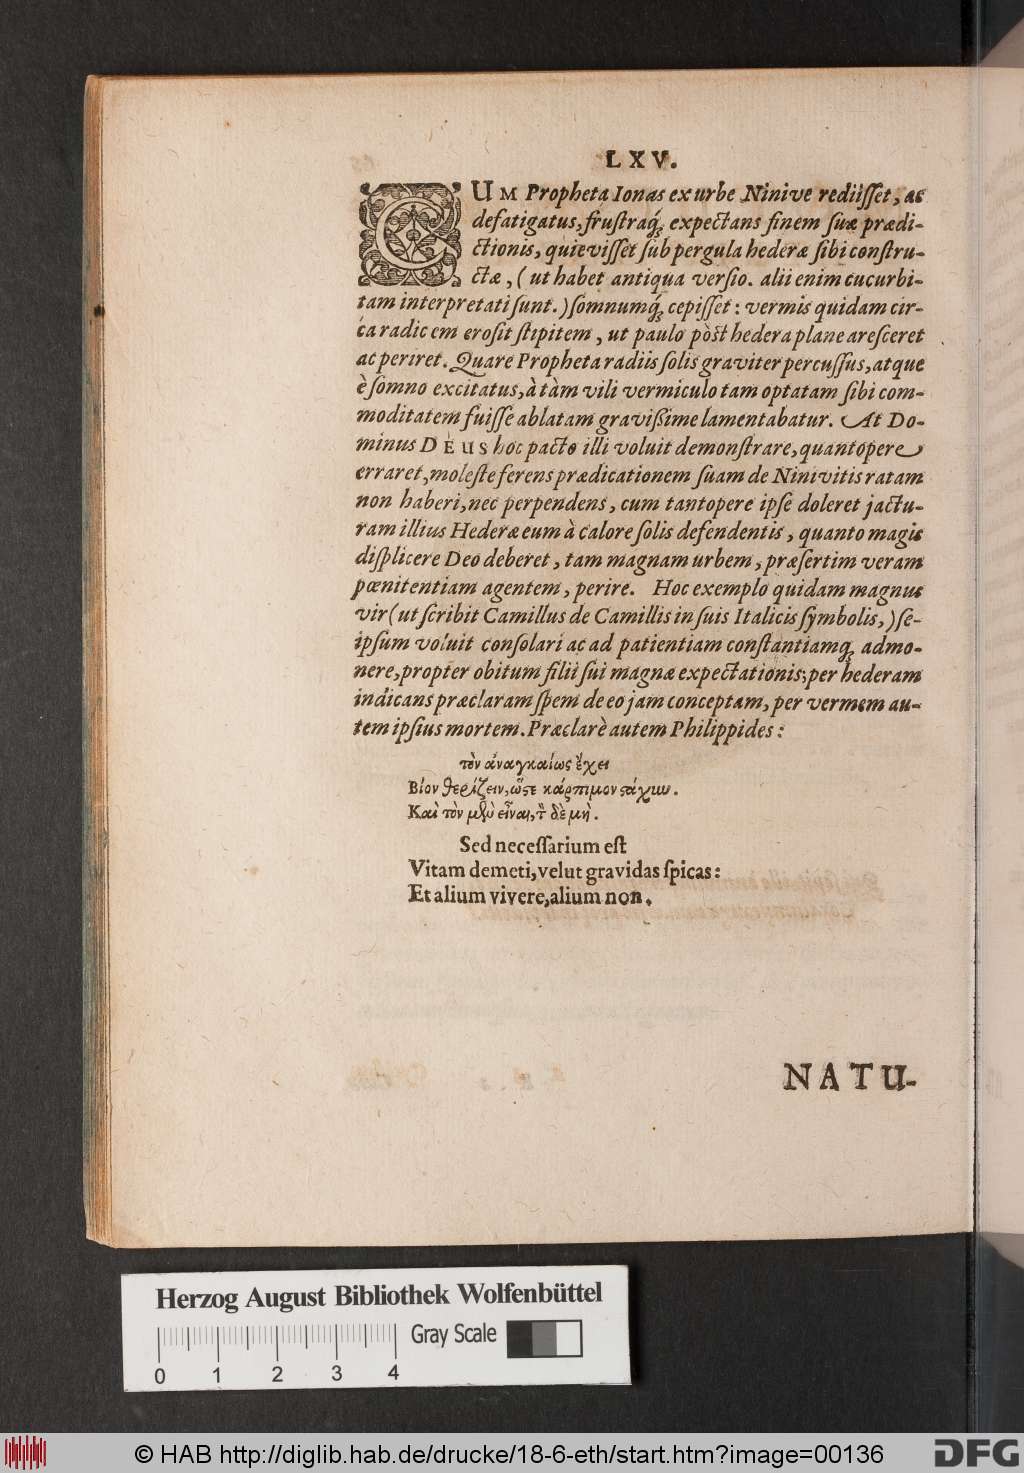 LXV.
CUM Propheta Ionas ex urbe Ninive rediisset, ac
defatigatus, frustraq́ꝫ expectans finem suæ prædi-
ctionis, quievisset sub pergula hederæ sibi constru-
ctæ, (ut habet antiqua versio. alii enim cucurbi-
tam interpretati sunt.) somnumq́ꝫ cepisset: vermis quidam cir-
ca radicem erosit stipitem, ut paulo pòst hedera plane aresceret
ac periret. Quare Propheta radiis solis graviter percussus, atque
è somno excitatus, à tàm vili vermiculo tam optatam sibi com-
moditatem fuisse ablatam gravißime lamentabatur. At Do-
minus DEUS hoc pacto illi voluit demonstrare, quantopere
erraret, moleste ferens prædicationem suam de Ninivitis ratam
non haberi, nec perpendens, cum tantopere ipse doleret jactu-
ram illius Hederæ eum à calore solis defendentis, quanto magis
displicere Deo deberet, tam magnam urbem, præsertim veram
pœnitentiam agentem, perire. Hoc exemplo quidam magnus
vir (ut scribit Camillus de Camillis in suis Italicis symbolis,) se-
ipsum voluit consolari ac ad patientiam constantiamq́ꝫ admo-
nere, propter obitum filii sui magnæ expectationis; per hederam
indicans præclaram spem de eo jam conceptam, per vermem au-
tem ipsius mortem. Præclarè autem Philippides:
τὸν ἀναγκαίως ἔχει
Βίον θερίζειν, ὥστε κάρπιμον στάχυν.
Καὶ τὸν μὲν εἶναι, τὸ δὲ μὴ.
Sed necessarium est
Vitam demeti, velut gravidas spicas:
Et alium vivere, alium non.
NATU-
Herzog August Bibliothek Wolfenbüttel
Gray Scale
0 1 2 3 4
© HAB http://diglib.hab.de/drucke/18-6-eth/start.htm?image=00136
DFG